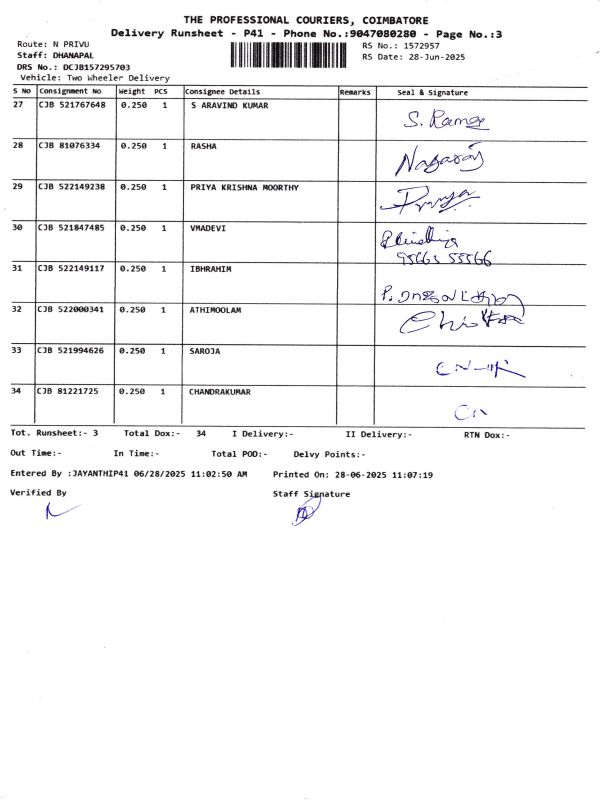 THE PROFESSIONAL COURIERS, COIMBATORE
Delivery Runsheet - P41 - Phone No.:9047080280 - Page No.:3
Route: N PRIVU
RS No.: 1572957
Staff: DHANAPAL
RS Date: 28-Jun-2025
DRS No.: DCJB157295703
Vehicle: Two Wheeler Delivery
S No Consignment No Weight PCS Consignee Details Remarks Seal & Signature
27 CJB 521767648 0.250 1 S ARAVIND KUMAR
S. Ramge
28 CJB 81076334 0.250 1 RASHA
Nagaraj
29 CJB 522149238 0.250 1 PRIYA KRISHNA MOORTHY
Priya
30 CJB 521847485 0.250 1 VMADEVI
95663 55566
31 CJB 522149117 0.250 1 IBHRAHIM
32 CJB 522000341 0.250 1 ATHIMOOLAM
33 CJB 521994626 0.250 1 SAROJA
34 CJB 81221725 0.250 1 CHANDRAKUMAR
Tot. Runsheet:- 3 Total Dox:- 34 I Delivery:- II Delivery:- RTN Dox:-
Out Time:- In Time:- Total POD:- Delvy Points:-
Entered By :JAYANTHIP41 06/28/2025 11:02:50 AM Printed On: 28-06-2025 11:07:19
Verified By Staff Signature